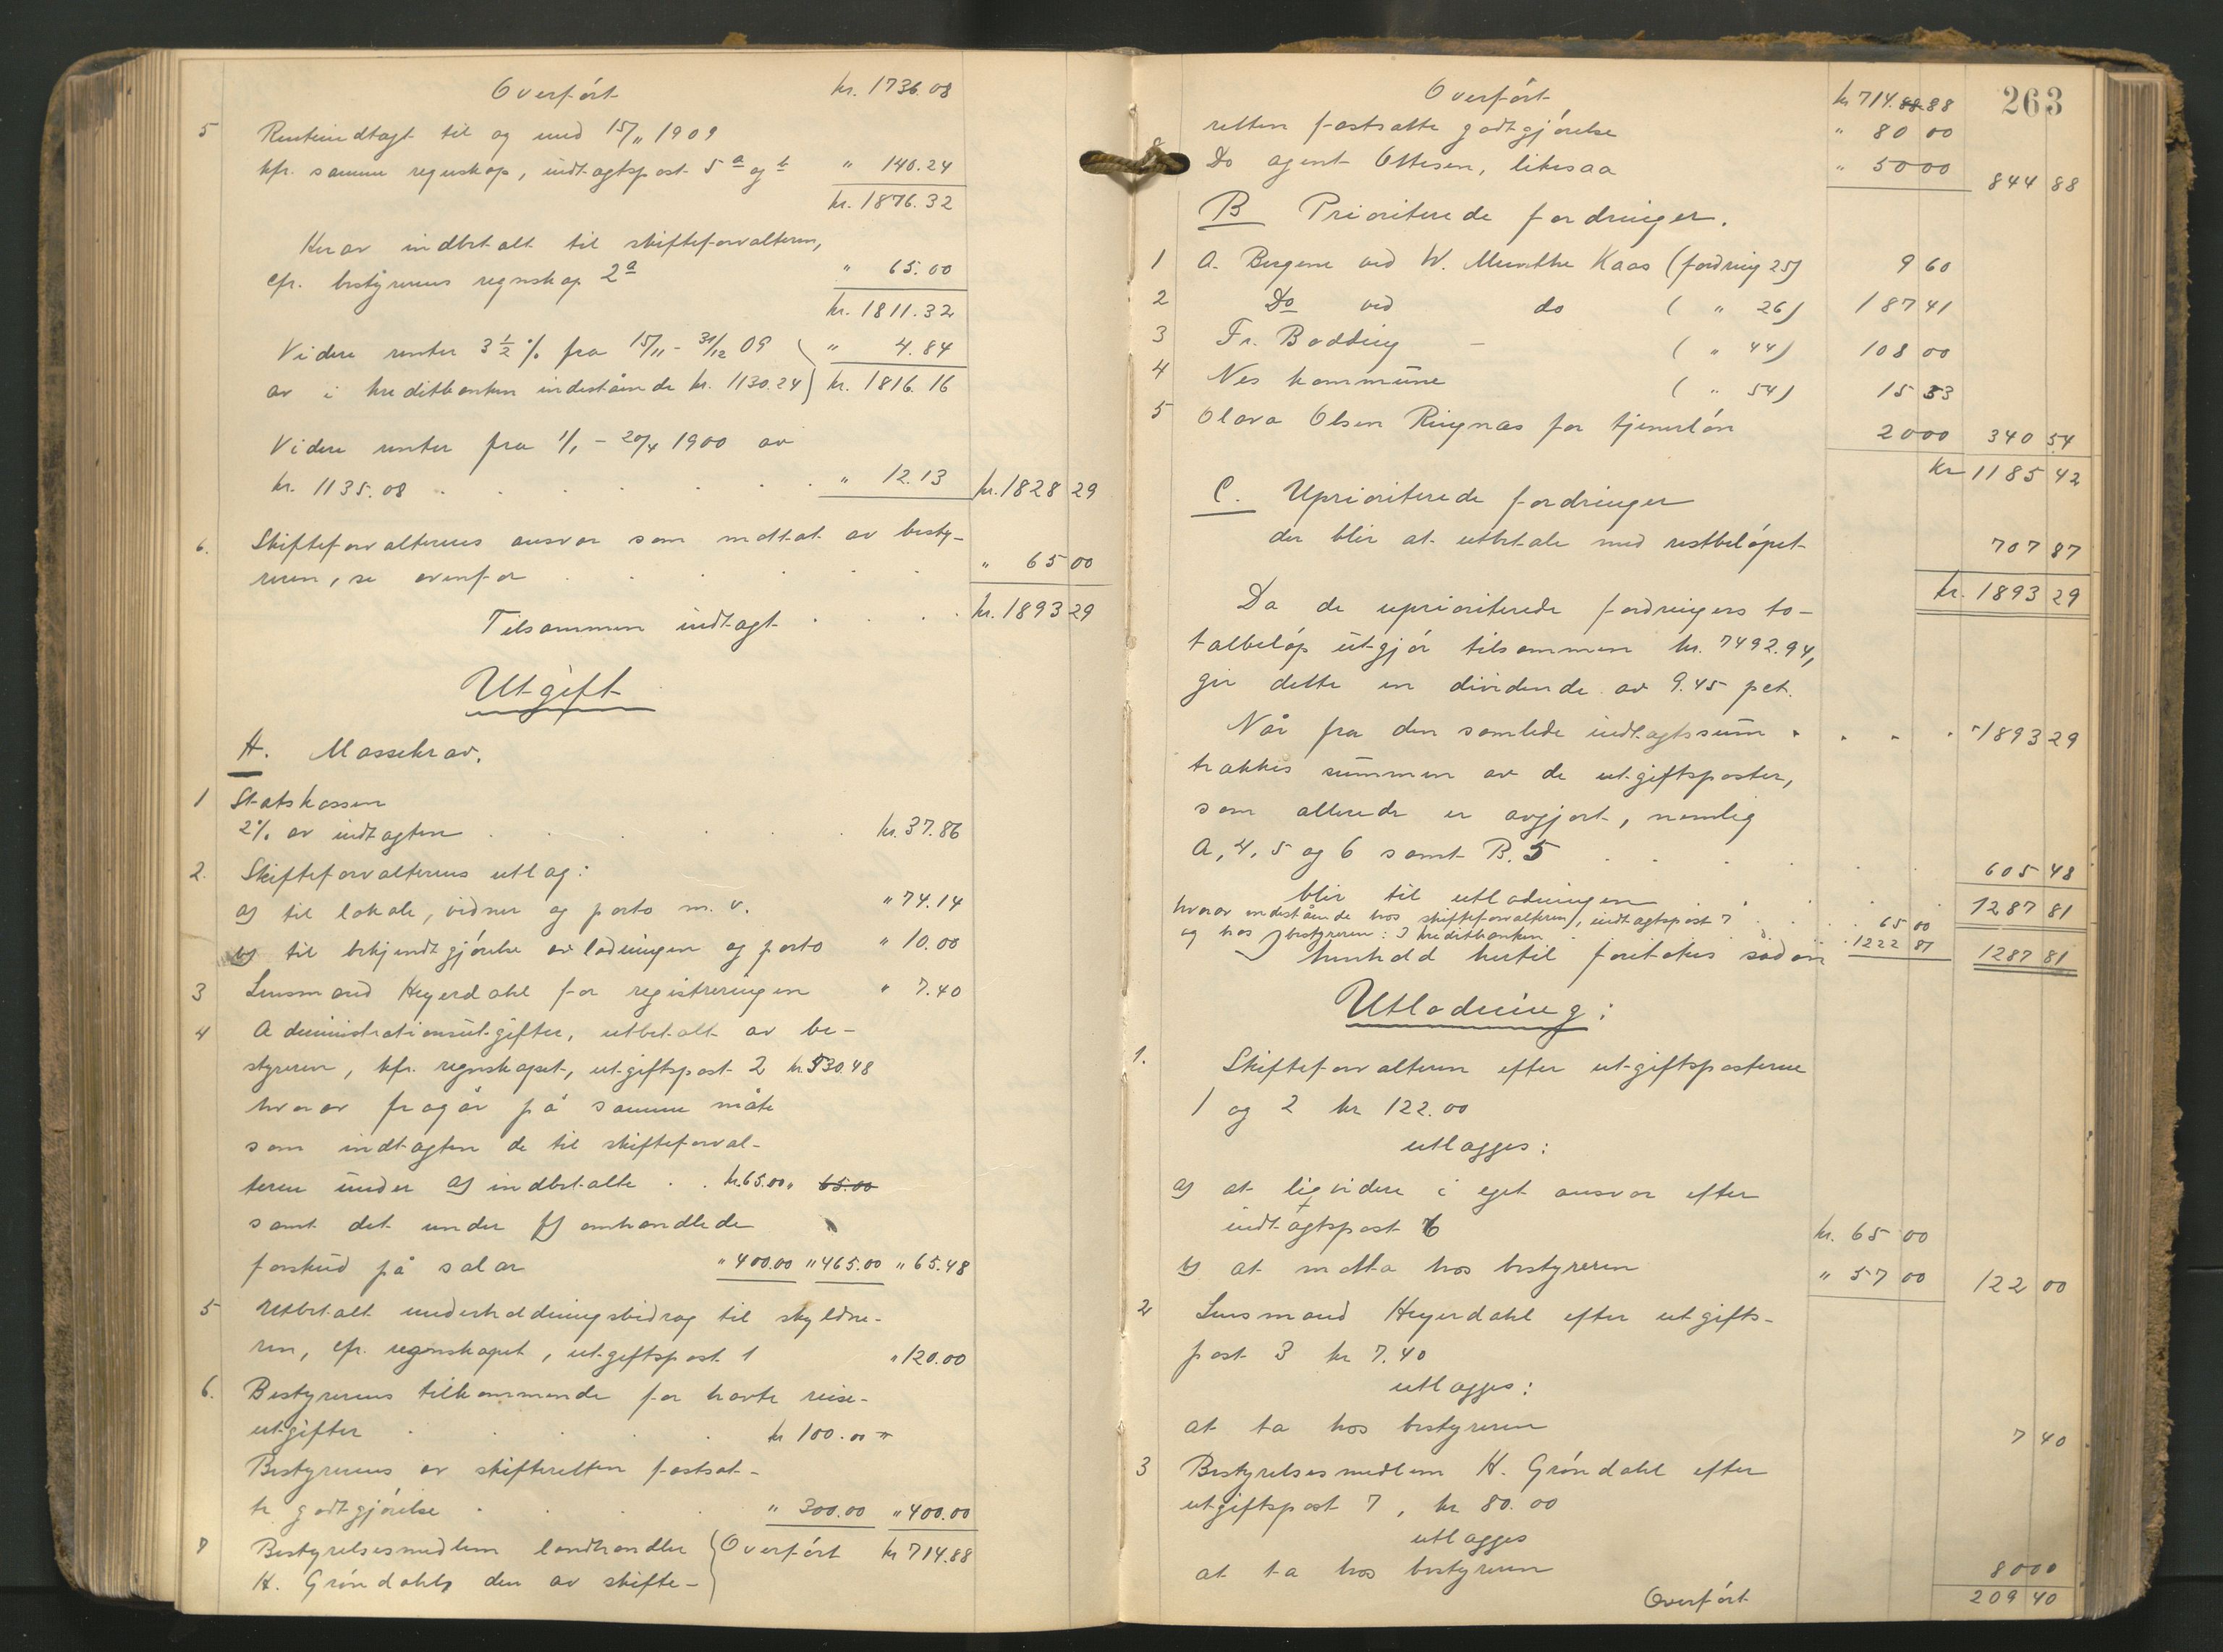 Overført kr. 1736.08
5 Renteindtægt til og med 15/11 1909
kfr. samme regnskap, indtægtspost 5 a og b " 140.24
kr. 1876.32
Herav indbetalt til skifteforvalteren,
cfr. bestyrerens regnskap 2a " 65.00
kr. 1811.32
Videre renter 3 1/2 % fra 15/11 - 31/12 09 " 4.84
av i kreditbanken indestående kr. 1130.24 kr. 1816.16
Videre renter fra 1/1 - 20/4 1900 av
kr. 1135.08 . . . . . . " 12.13 kr. 1828 29
6. Skifteforvalterens ansvar som mottat av besty-
reren, se ovenfor . . . . . " 65 00
Tilsammen indtægt . . . . kr. 1893 29
Utgift
A. Massekrav.
1 Statskassen
2% av indtægten . . . . . kr. 37.86
2. Skifteforvalterens utlæg:
a) til lokale, vidner og porto m. v. " 74.14
b) til bekjendtgjørelse av lodningen og porto " 10.00
3 Lensmand Heyerdahl for registreringen " 7.40
4 Administrationsutgifter, utbetalt av be-
styreren, kfr. regnskapet, utgiftspost 2 kr. 530.48
hvorav fragår på samme måte
som indtægten de til skifteforval-
teren under a) indbetalte . . kr. 65.00 " 65.00
samt det under f) omhandlede
forskud på salær " 400.00 " 465.00 " 65.48
5 Utbetalt underholdningsbidrag til skyldne-
ren, cfr. regnskapet, utgiftspost 1 " 120.00
6. Bestyrerens tilkommende for havte reise-
utgifter . . . . . kr 100.00
Bestyrerens av skifteretten fastsat-
te godtgjørelse . . . . " 300.00 " 400.00
7 Bestyrelsesmedlem landhandler Overført kr 714.88
H. Grøndahls den av skifte-
263
Overført kr 714.88 88
retten fastsatte godtgjørelse " 80 00
8 Do agent Ottesen, likesaa " 50 00 844 88
B Prioriterede fordringer.
1 A. Bergene ved W. Munthe Kaas (fordring 25) 9 60
2 Do ved do ( " 26) 187 41
3 Fr. Bødding - ( " 44) 108 00
4 Nes kommune ( " 54) 15 53
5 Olava Olsen Ringnæs for tjenerløn 20 00 340 54
kr 1185 42
C. Uprioriterede fordringer
der blir at utbetale med restbeløpet 707 87
kr. 1893 29
Da de uprioriterede fordringers to-
talbeløp utgjør tilsammen kr. 7492.94,
gir dette en dividende av 9.45 pct.
Når fra den samlede indtægtssum . . . . " 1893 29
trækkes summen av de utgiftsposter,
som allerede er avgjort, nemlig
A, 4, 5 og 6 samt B. 5 . . . . 605 48
blir til utlodningen . . . . 1287 81
hvorav indestående hos skifteforvalteren, indtægtspost 7 . . 65 00
og hos bestyreren: I kreditbanken . . 1222 81 1287 81
I henhold hertil foretokes sådan
Utlodning:
1. Skifteforvalteren efter utgiftsposterne
1 og 2 kr 122.00
utlægges:
a) at liqvidere i eget ansvar efter
indtægtspost 6 kr. 65 00
b) at motta hos bestyreren " 57 00 122 00
2 Lensmand Heyerdahl efter utgifts-
post 3 kr 7.40
utlægges:
at ta hos bestyreren 7 40
3 Bestyrelsesmedlem H. Grøndahl efter
utgiftspost 7, kr 80.00
utlægges
at ta hos bestyreren 80 00
Overført 209 40